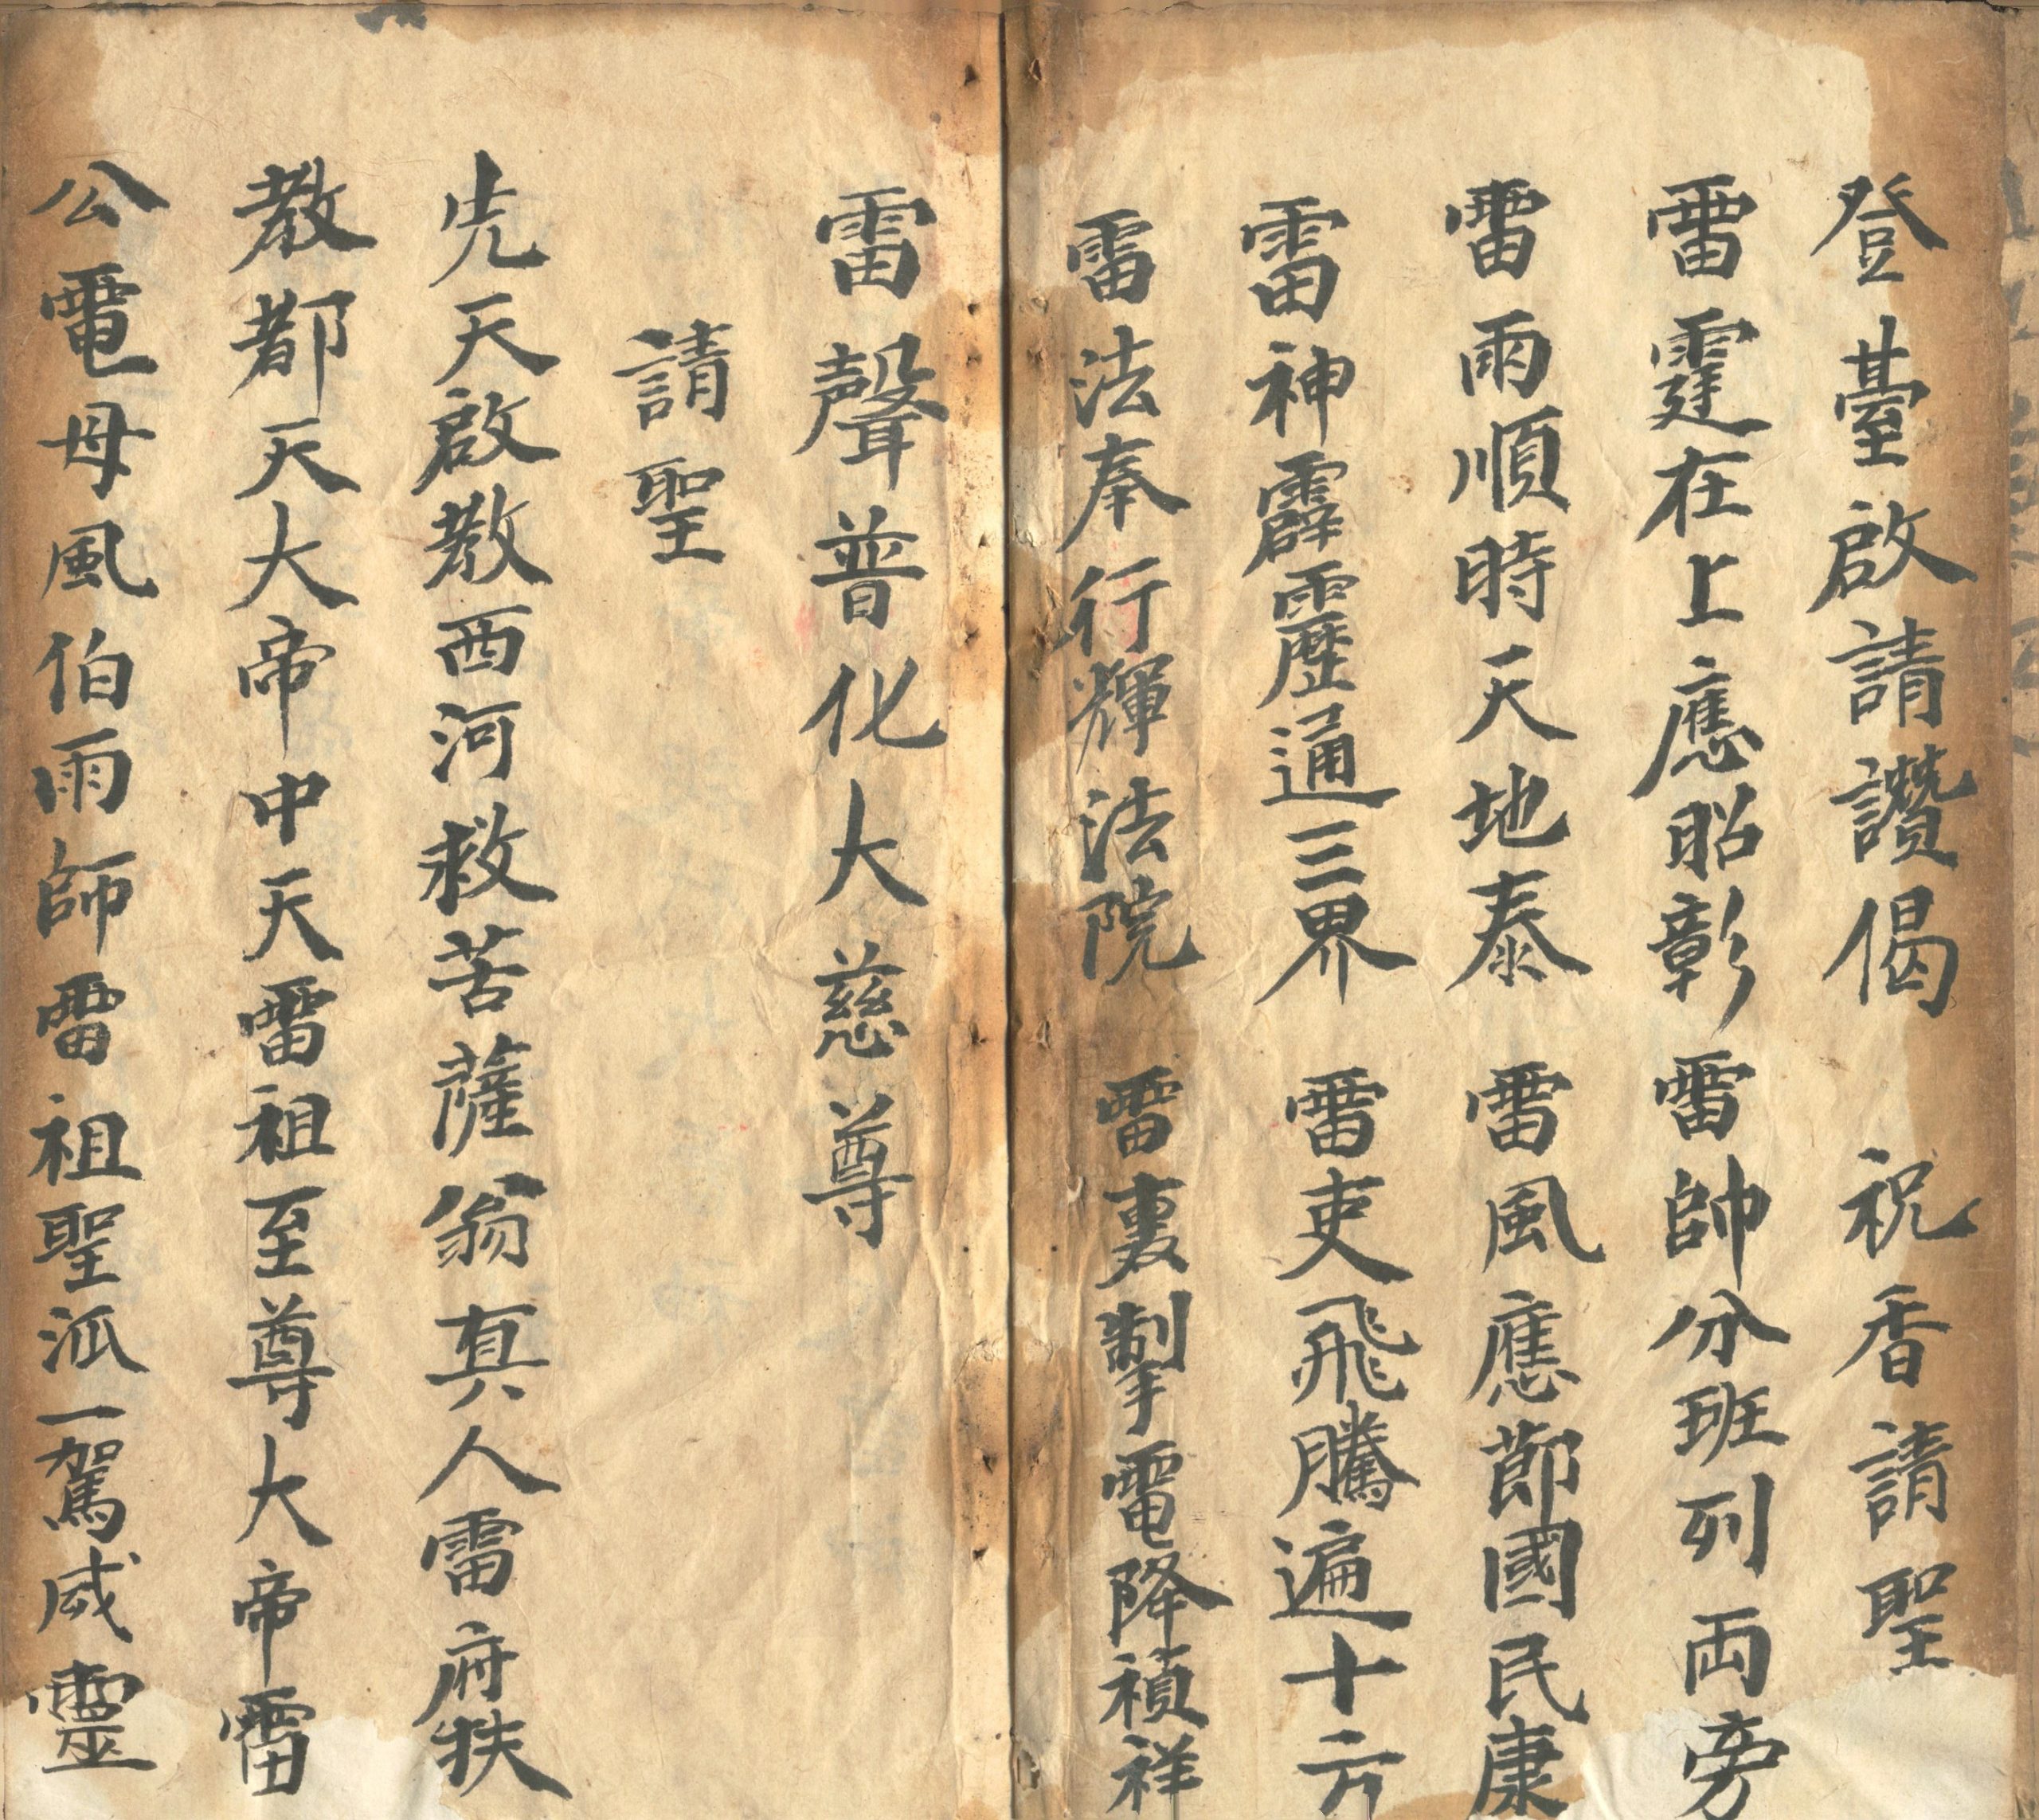 登臺啟請讚偈 祝香請聖
雷霆在上應昭彰 雷帥分班列両旁
雷雨順時天地泰 雷風應節國民康
雷神霹靂通三界 雷吏飛騰遍十方
雷法奉行輝法院 雷裏掣電降禎祥
雷聲普化大慈尊
請聖
先天啟教西河救苦薩翁真人雷府扶
教都天大帝中天雷祖至尊大帝雷
公電母風伯雨師雷祖聖派一駕威靈